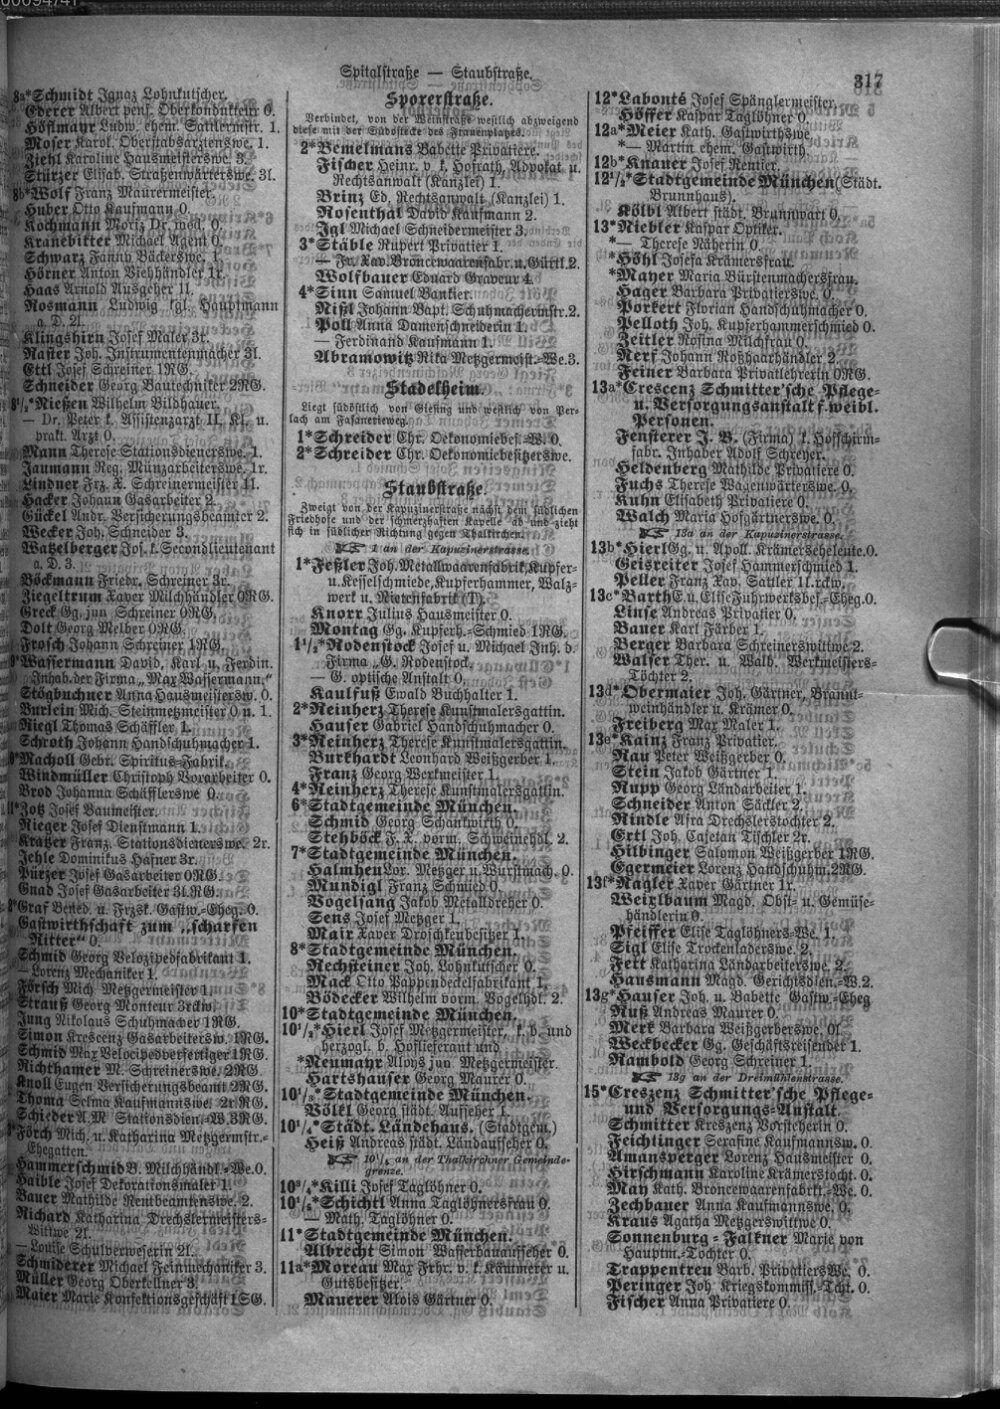 Spitalstraße — Staubstraße.
317
8a*Schmidt Ignaz Lohnkutscher.
Ederer Albert pens. Oberkondukteur 0.
Höflmayr Ludw. ehem. Sattlermstr. 1.
Moser Karol. Oberstabsarztenswe. 1.
Ziehl Karoline Hausmeisterswe. 3.
Stürzer Elisab. Straßenwärterswe. 3l.
8b*Wolf Franz Maurermeister.
Huber Otto Kaufmann 0.
Kochmann Moriz Dr. med. 0.
Kranebitter Michael Agent 0.
Schwarz Fanny Bäckerswe. 1.
Hörner Anton Viehhändler 1r.
Haas Arnold Ausgeher 1l.
Rosmann Ludwig kgl. Hauptmann
a. D. 2l.
Klingshirn Josef Maler 3r.
Raster Joh. Instrumentenmacher 3l.
Ettl Josef Schreiner 1RG.
Schneider Georg Bautechniker 2RG.
8¹/₂*Nießen Wilhelm Bildhauer.
— Dr. Peter k. Assistenzarzt II. Kl. u.
prakt. Arzt 0.
Mann Therese Stationsdienerswe. 1.
Jaumann Reg. Münzarbeiterswe. 1r.
Lindner Frz. X. Schreinermeister 1l.
Hacker Johann Gasarbeiter 2.
Gückel Andr. Versicherungsbeamter 2.
Wecker Joh. Schneider 3.
Watzelberger Jos. k. Secondlieutenant
a. D. 3.
Böckmann Friedr. Schreiner 3r.
Ziegeltrum Xaver Milchhändler 0RG.
Greck Gg. jun Schreiner 0RG.
Dolt Georg Melber 0RG.
Frosch Johann Schreiner 1RG.
*Wassermann David, Karl u. Ferdin.
Inhab. der Firma „Max Wassermann."
Stögbuchner Anna Hausmeistersw. 0.
Burlein Mich. Steinmetzmeister 0 u. 1.
Riegl Thomas Schäffler 1.
Schroth Johann Handschuhmacher 1.
*Macholl Gebr. Spiritus-Fabrik.
Windmüller Christoph Vorarbeiter 0.
Brod Johanna Schäfflerswe 0.
*Zotz Josef Baumeister.
Rieger Josef Dienstmann 1.
Kratzer Franz. Stationsdienerswe. 2r.
Jehle Dominikus Hafner 3r.
Pürzer Josef Gasarbeiter 0RG.
Gnad Josef Gasarbeiter 3l.RG.
*Graf Bened. u. Frzsk. Gastw.-Eheg. 0.
Gastwirthschaft zum „scharfen
Ritter" 0.
Schmid Georg Velozipedfabrikant 1.
— Lorenz Mechaniker 1.
Försch Mich. Metzgermeister 1.
Strauß Georg Monteur 3rckw.
Jung Nikolaus Schuhmacher 1RG.
Simon Kreszenz Gasarbeitersw. 1RG.
Schmid Max Velocipedverfertiger 1RG.
Richthamer M. Schreinerswe. 2RG.
Knoll Eugen Versicherungsbeamt 2RG.
Thoma Selma Kaufmannswe. 2r.RG.
Schieder A. M Stationsdien.-W. 3RG.
*Förch Mich. u. Katharina Metzgermstr.-
Ehegatten.
Hammerschmid B. Milchhändl.-We. 0.
Haible Josef Dekorationsmaler 1.
Bauer Mathilde Rentbeamtenswe. 2.
Richard Katharina Drechslermeisters-
Wittwe 2l.
— Louise Schulverweserin 2l.
Schmiderer Michael Feinmechaniker 3.
Müller Georg Oberkellner 3.
Maier Marie Konfektionsgeschäft 1SG.
Sporerstraße.
Verbindet, von der Weinstraße westlich abzweigend
diese mit der Südostecke des Frauenplatzes.
2*Bemelmans Babette Privatiere.
Fischer Heinr. v. k. Hofrath, Advokat u.
Rechtsanwalt (Kanzlei) 1.
Brinz Ed. Rechtsanwalt (Kanzlei) 1.
Rosenthal David Kaufmann 2.
Igl Michael Schneidermeister 3.
3*Stäble Rupert Privatier 1.
— Fr. Xav. Broncewaarenfabr. u. Gürtl. 2.
Wolfbauer Eduard Graveur 4.
4*Sinn Samuel Bankier.
Rißl Johann Bapt. Schuhmachermstr. 2.
Poll Anna Damenschneiderin 1.
— Ferdinand Kaufmann 1.
Abramowitz Rika Metzgermeist.-We. 3.
Stadelheim.
Liegt südöstlich von Giesing und westlich von Per-
lach am Fasanerieweg.
1*Schreider Chr. Oekonomiebes.-W. 0.
2*Schreider Chr. Oekonomiebesitzerswe.
Staubstraße.
Zweigt von der Kapuzinerstraße nächst dem südlichen
Friedhofe und der schmerzhaften Kapelle ab und zieht
sich in südlicher Richtung gegen Thalkirchen.
☞ 1 an der Kapuzinerstrasse.
1*Feßler Joh. Metallwaarenfabrik, Kupfer-
u. Kesselschmiede, Kupferhammer, Walz-
werk u. Nietenfabrik (T).
Knorr Julius Hausmeister 0.
Montag Gg. Kupferh.-Schmied 1RG.
1¹/₂*Rodenstock Josef u. Michael Inh. d.
Firma „G. Rodenstock.
— G. optische Anstalt 0.
Kaulfuß Ewald Buchhalter 1.
2*Reinherz Therese Kunstmalersgattin.
Hauser Gabriel Handschuhmacher 0.
3*Reinherz Therese Kunstmalersgattin.
Burkhardt Leonhard Weißgerber 1.
Franz Georg Werkmeister 1.
4*Reinherz Therese Kunstmalersgattin.
6*Stadtgemeinde München.
Schmid Georg Schankwirth 0.
Stehböck F. X. vorm. Schweinehdl. 2.
7*Stadtgemeinde München.
Halmhen Lor. Metzger u. Wurstmach. 0.
Mundigl Franz Schmied 0.
Vogelsang Jakob Metalldreher 0.
Sens Josef Metzger 1.
Mair Xaver Droschkenbesitzer 1.
8*Stadtgemeinde München.
Rechsteiner Joh. Lohnkutscher 0.
Mack Otto Pappendeckelfabrikant 1.
Bödecker Wilhelm vorm. Vogelhdl. 2.
10*Stadtgemeinde München.
10¹/₂*Hierl Josef Metzgermeister, k. b. und
herzogl. b. Hoflieferant und
*Neumayr Aloys jun Metzgermeister.
Hartshauser Georg Maurer 0.
10¹/₃*Stadtgemeinde München.
Völkl Georg städt. Aufseher 1.
10¹/₄*Städt. Ländehaus. (Stadtgem.)
Heiß Andreas städt. Ländaufseher 0.
☞ 10¹/₅ an der Thalkirchner Gemeinde-
grenze.
10¹/₆*Killi Josef Taglöhner 0.
10¹/₇*Schichtl Anna Taglöhnersfrau 0.
— Math. Taglöhner 0.
11*Stadtgemeinde München.
Albrecht Simon Wasserbauaufseher 0.
11a*Moreau Max Frhr. v. k. Kämmerer u.
Gutsbesitzer.
Mauerer Alois Gärtner 0.
12*Labonté Josef Spänglermeister.
Höffer Kaspar Taglöhner 0.
12a*Meier Kath. Gastwirthswe.
*— Martin ehem. Gastwirth.
12b*Knauer Josef Rentier.
12¹/₂*Stadtgemeinde München (Städt.
Brunnhaus).
Kölbl Albert städt. Brunnwart 0.
13*Niebler Kaspar Optiker.
*— Therese Näherin 0.
*Höhl Josefa Krämersfrau.
*Mayer Maria Bürstenmachersfrau.
Hager Barbara Privatierswe. 0.
Porkert Florian Handschuhmacher 0.
Pelloth Joh. Kupferhammerschmied 0.
Zeitler Rosina Milchfrau 0.
Nerf Johann Roßhaarhändler 2.
Feiner Barbara Privatlehrerin 0RG.
13a*Crescenz Schmitter'sche Pflege-
u. Versorgungsanstalt f. weibl.
Personen.
Fensterer J. B. (Firma) k. Hofschirm-
fabr. Inhaber Adolf Schreyer.
Heldenberg Mathilde Privatiere 0.
Fuchs Therese Wagenwärterswe. 0.
Kuhn Elisabeth Privatiere 0.
Walch Maria Hofgärtnerswe. 0.
☞ 13a an der Kapuzinerstrasse.
13b*Hierl Gg. u. Apoll. Krämerseheleute. 0.
Geisreiter Josef Hammerschmied 1.
Peller Franz Xav. Sattler 1l.rckw.
13c*Barth E. u. Elise Fuhrwerksbes.-Eheg. 0.
Linse Andreas Privatier 0.
Bauer Karl Färber 1.
Berger Barbara Schreinerswittwe 2.
Walser Ther. u. Walb. Werkmeisters-
Töchter 2.
13d*Obermaier Joh. Gärtner, Brannt-
weinhändler u. Krämer 0.
Freiberg Max Maler 1.
13e*Kainz Franz Privatier.
Rau Peter Weißgerber 0.
Stein Jakob Gärtner 1.
Rupp Georg Ländarbeiter 1.
Schneider Anton Säckler 2.
Rindle Afra Drechslerstochter 2.
Ertl Joh. Cajetan Tischler 2r.
Hilbinger Salomon Weißgerber 1RG.
Egermeier Lorenz Handschuhm. 2RG.
13f*Nagler Xaver Gärtner 1r.
Weixlbaum Magd. Obst- u. Gemüse-
händlerin 0.
Pfeiffer Elise Taglöhners-We. 1.
Sigl Elise Trockenladerswe. 2.
Fert Katharina Ländarbeiterswe. 2.
Hausmann Magd. Gerichtsdien.-W. 2.
13g*Hauser Joh. u. Babette Gastw.-Eheg
Nuß Andreas Maurer 0.
Merk Barbara Weißgerberswe. 0l
Weckbecker Gg. Geschäftsreisender 1.
Rambold Georg Schreiner 1.
☞ 13g an der Dreimühlenstrasse.
15*Creszenz Schmitter'sche Pflege-
und Versorgungs-Anstalt.
Schmitter Kreszenz Vorsteherin 0.
Feichtinger Serafine Kaufmannsw. 0.
Amansperger Lorenz Hausmeister 0.
Hirschmann Karoline Krämerstocht. 0.
May Kath. Broncewaarenfabrkt.-We. 0.
Zechbauer Anna Kaufmannswe. 0.
Kraus Agatha Metzgerswittwe 0.
Sonnenburg-Falkner Marie von
Hauptm.-Tochter 0.
Trappentreu Barb. PrivatiersWe. 0.
Peringer Joh. Kriegskommiss.-Tcht. 0.
Fischer Anna Privatiere 0.